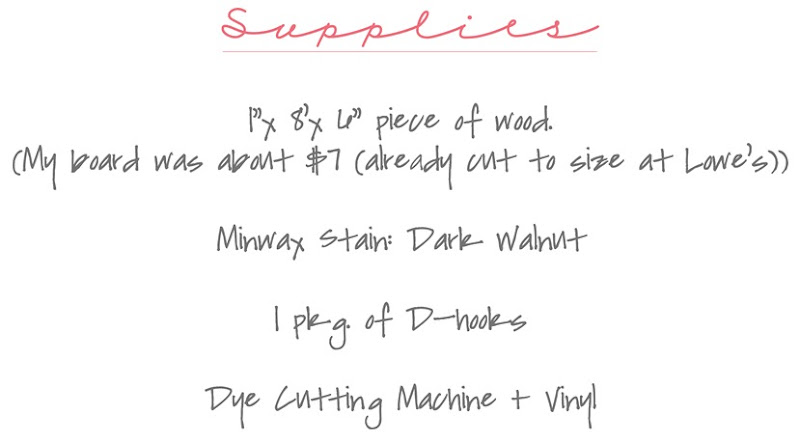 Supplies
1"x 8'x 6" piece of wood.
(My board was about $7 (already cut to size at Lowe's))
Minwax Stain: Dark Walnut
1 pkg. of D-hooks
Dye Cutting Machine + Vinyl